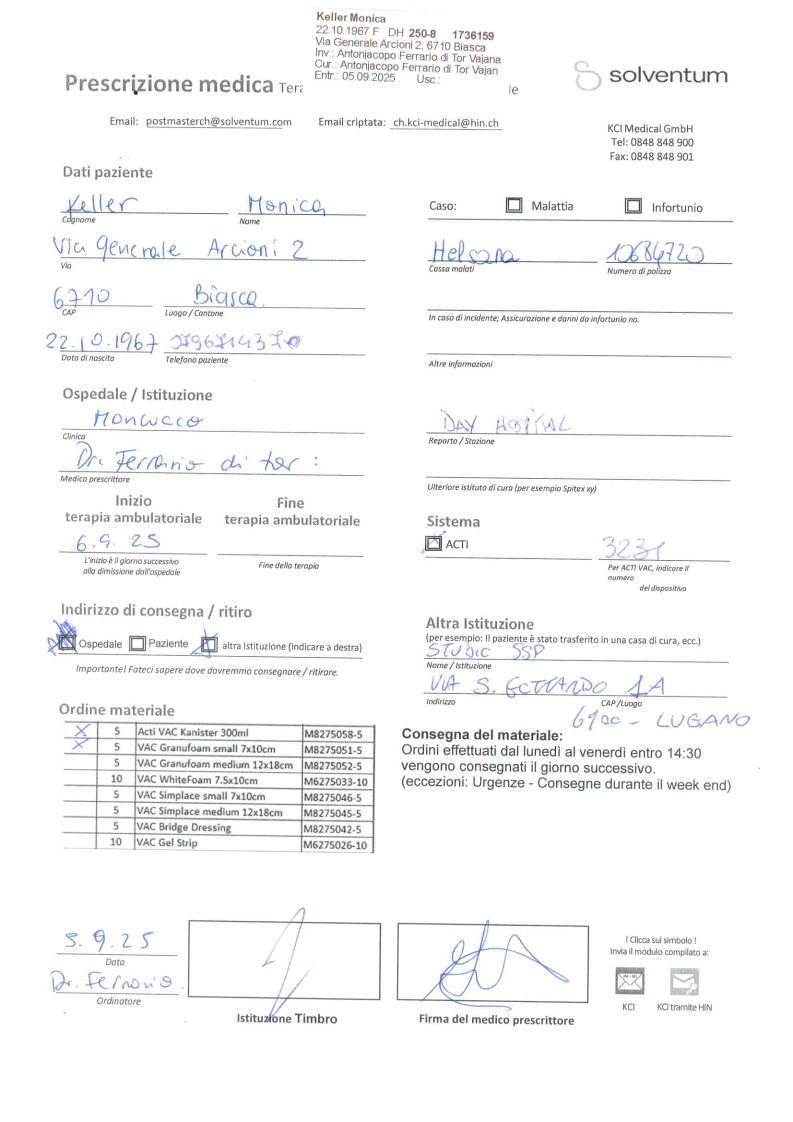 Keller Monica
22.10.1967 F DH 250-8 1736159
Via Generale Arcioni 2, 6710 Biasca
Inv.: Antonjacopo Ferrario di Tor Vajana
Cur.: Antonjacopo Ferrario di Tor Vajan
Entr.: 05.09.2025 Usc.:
Prescrizione medica Tera le
solventum
Email: postmasterch@solventum.com Email criptata: ch.kci-medical@hin.ch
KCI Medical GmbH
Tel: 0848 848 900
Fax: 0848 848 901
Dati paziente
Keller Monica
Cognome Nome
Caso: Malattia Infortunio
Via Generale Arcioni 2
Via
Helsana 10684720
Cassa malati Numero di polizza
6710 Biasca
CAP Luogo / Cantone
In caso di incidente; Assicurazione e danni da infortunio no.
22.10.1967
Data di nascita Telefono paziente
Altre informazioni
Ospedale / Istituzione
Moncucco
Clinica
DAY HOSPITAL
Reparto / Stazione
Dr. Ferrario di tor :
Medico prescrittore
Ulteriore istituto di cura (per esempio Spitex xy)
Inizio
terapia ambulatoriale
Fine
terapia ambulatoriale
6.9. 25
L'inizio è il giorno successivo
alla dimissione dall'ospedale
Fine della terapia
Sistema
ACTI
3231
Per ACTI VAC, indicare il
numero
del dispositivo
Indirizzo di consegna / ritiro
Ospedale Paziente altra Istituzione (indicare a destra)
Importante! Fateci sapere dove dovremmo consegnare / ritirare.
Altra Istituzione
(per esempio: Il paziente è stato trasferito in una casa di cura, ecc.)
STUDIO SSP
Nome / Istituzione
VIA S. GOTTARDO 1A
Indirizzo CAP /Luogo
6900 - LUGANO
Ordine materiale
X 5 Acti VAC Kanister 300ml M8275058-5
X 5 VAC Granufoam small 7x10cm M8275051-5
5 VAC Granufoam medium 12x18cm M8275052-5
10 VAC WhiteFoam 7.5x10cm M6275033-10
5 VAC Simplace small 7x10cm M8275046-5
5 VAC Simplace medium 12x18cm M8275045-5
5 VAC Bridge Dressing M8275042-5
10 VAC Gel Strip M6275026-10
Consegna del materiale:
Ordini effettuati dal lunedì al venerdì entro 14:30
vengono consegnati il giorno successivo.
(eccezioni: Urgenze - Consegne durante il week end)
5.9.25
Data
Dr. Ferrario.
Ordinatore
Istituzione Timbro
Firma del medico prescrittore
! Clicca sul simbolo !
Invia il modulo compilato a:
KCI KCI tramite HIN